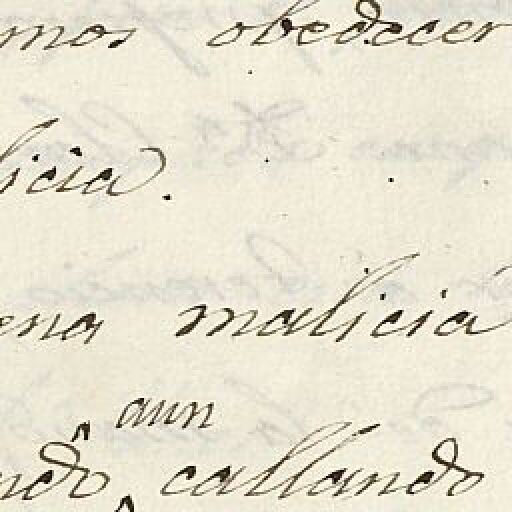 mos obedecer
licia.
ena malicia
aun
ndo callando